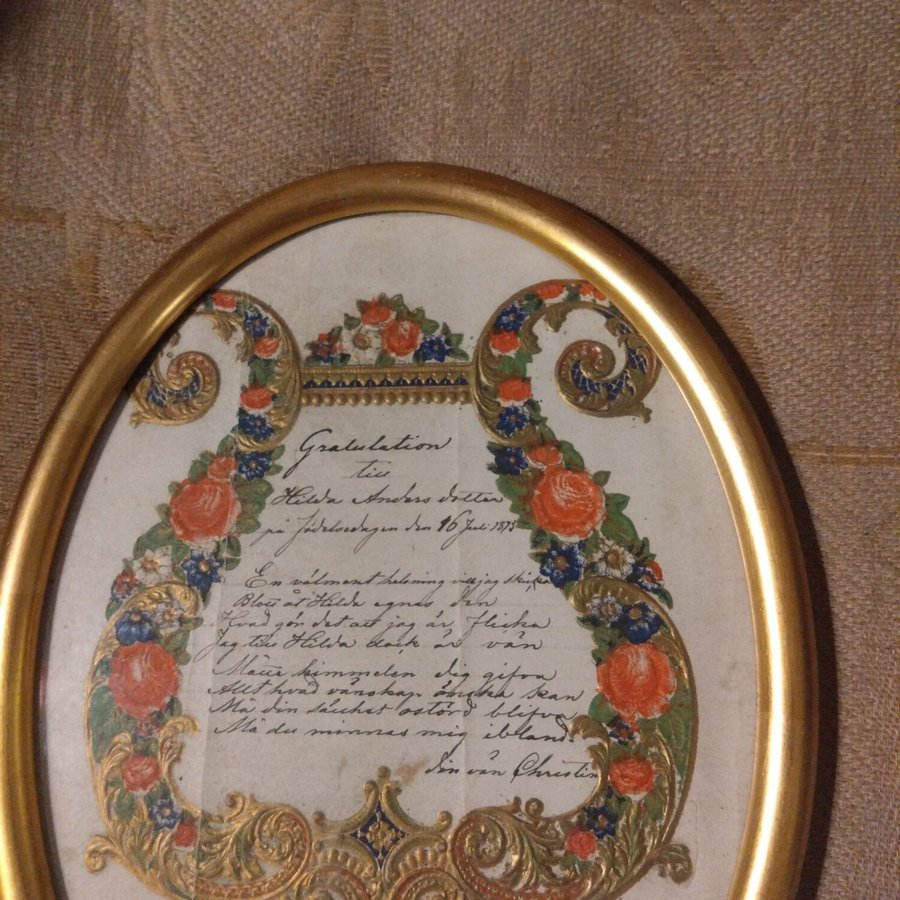 Gratulation
till
Hilda Anders dotter
på Födelsedagen den 16 Juli 1873
En välment helsning vill jag skicka
Blott åt Hilda egnas den
Hvad gör det att jag är flicka
Jag till Hilda dock är vän
Måtte himmelen dig gifva
Allt hvad vänskap önska kan
Må din sällhet ostörd blifva
Må du minnas mig ibland.
din vän Christin